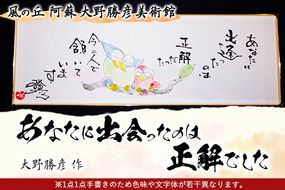 風の丘 阿蘇 大野勝彦美術館
あなたに
出逢ったのは
正解だった
今二人で
頷いて
います
あなたに出会ったのは
正解でした
大野勝彦 作
※1点1点手書きのため色味や文字体が若干異なります。